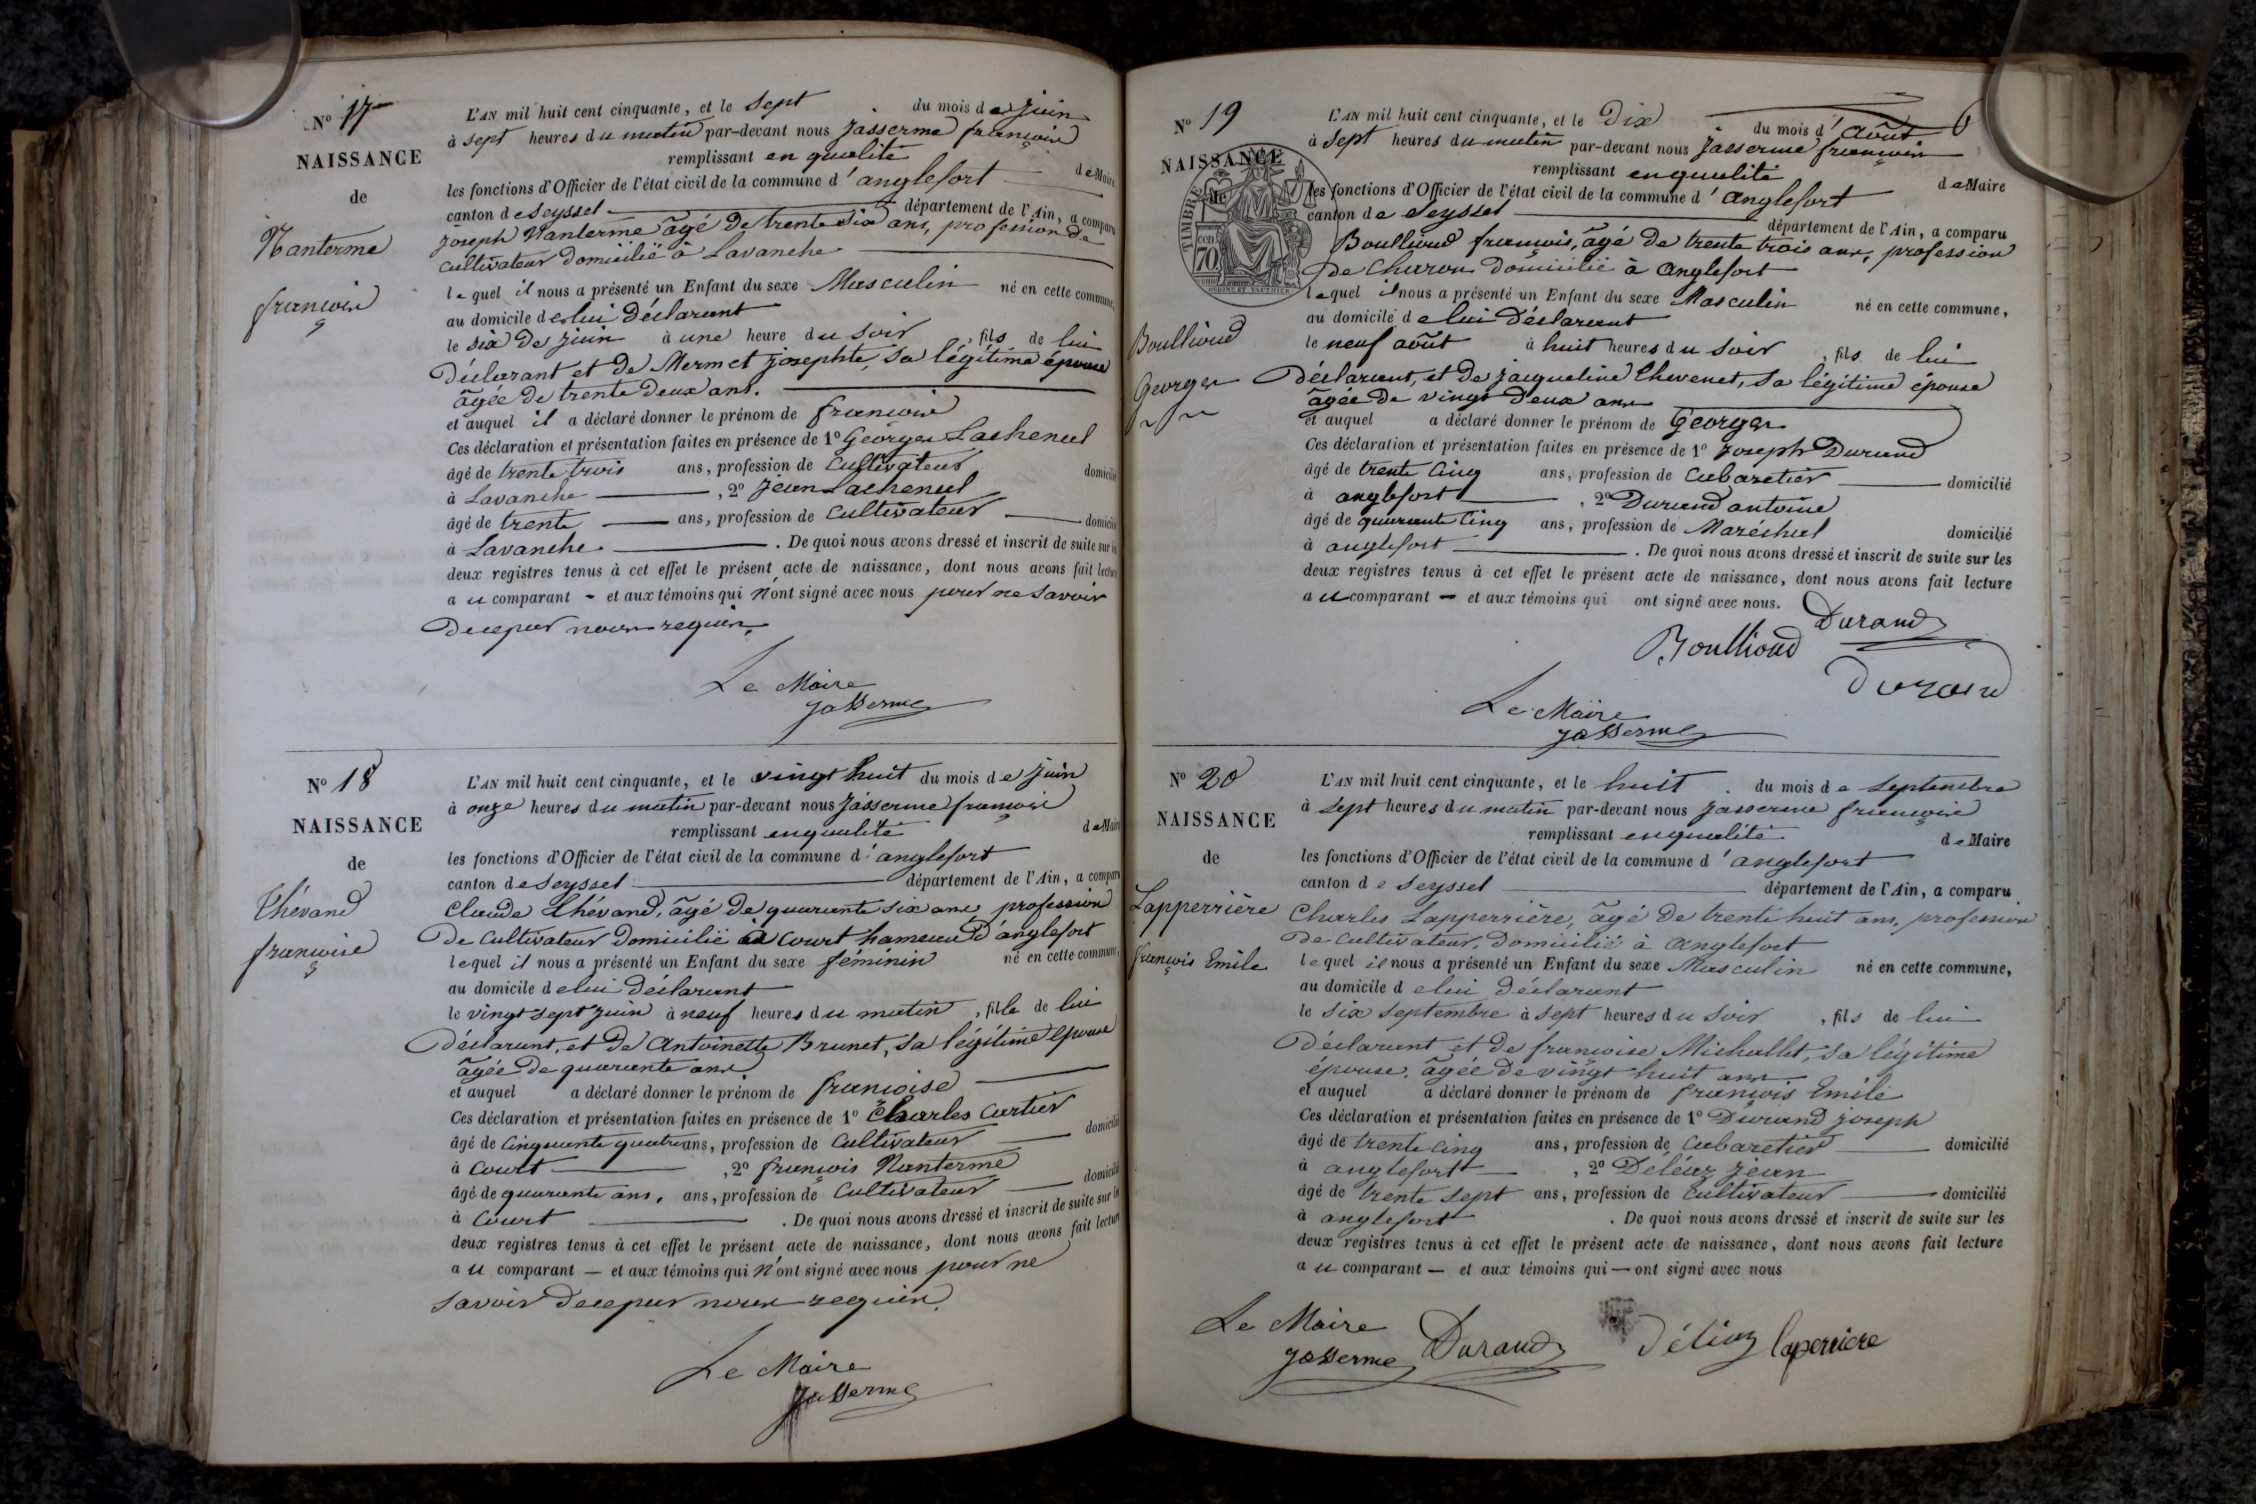 N° 17
NAISSANCE
de
Nanterme
françois
L'AN mil huit cent cinquante, et le Sept du mois de Juin
à Sept heures du matin par-devant nous Jasserme françois
remplissant en qualité de Maire
les fonctions d'Officier de l'état civil de la commune d'anglefort
canton de Seyssel département de l'Ain, a comparu
Joseph Nanterme âgé de trente six ans, profession de
cultivateur domicilié à Lavanche
lequel il nous a présenté un Enfant du sexe Masculin né en cette commune,
au domicile de lui déclarant
le six de juin à une heure du Soir, fils de lui
déclarant et de Mermet josephte, sa légitime épouse
âgée de trente deux ans.
et auquel il a déclaré donner le prénom de françois
Ces déclaration et présentation faites en présence de 1° Georges Lachenal
âgé de trente trois ans, profession de Cultivateur domicilié
à Lavanche, 2° Jean Lachenal
âgé de trente ans, profession de Cultivateur domicilié
à Lavanche. De quoi nous avons dressé et inscrit de suite sur les
deux registres tenus à cet effet le présent acte de naissance, dont nous avons fait lecture
au comparant - et aux témoins qui n'ont signé avec nous pour ne savoir
dece par nous requis.
Le Maire
Jasserme
N° 18
NAISSANCE
de
Thévand
françoise
L'AN mil huit cent cinquante, et le vingt huit du mois de Juin
à onze heures du matin par-devant nous Jasserme françois
remplissant en qualité de Maire
les fonctions d'Officier de l'état civil de la commune d'anglefort
canton de Seyssel département de l'Ain, a comparu
Claude Thévand, âgé de quarante six ans, profession
de cultivateur domicilié à Court hameau d'anglefort
lequel il nous a présenté un Enfant du sexe féminin né en cette commune,
au domicile de lui déclarant
le vingt sept juin à neuf heures du matin, fille de lui
déclarant, et de Antoinette Brunet, sa légitime épouse
âgée de quarante ans
et auquel a déclaré donner le prénom de françoise
Ces déclaration et présentation faites en présence de 1° Charles Cartier
âgé de Cinquante quatre ans, profession de Cultivateur domicilié
à Court, 2° françois Nanterme
âgé de quarante ans, ans, profession de Cultivateur domicilié
à Court. De quoi nous avons dressé et inscrit de suite sur les
deux registres tenus à cet effet le présent acte de naissance, dont nous avons fait lecture
au comparant — et aux témoins qui n'ont signé avec nous pour ne
savoir dece par nous requis.
Le Maire
Jasserme
6
N° 19
NAISSANCE
de
TIMBRE
70
Boullioud
Georges
L'AN mil huit cent cinquante, et le Dix du mois d'août
à Sept heures du matin par-devant nous Jasserme françois
remplissant en qualité de Maire
les fonctions d'Officier de l'état civil de la commune d'anglefort
canton de Seyssel département de l'Ain, a comparu
Boullioud françois, âgé de trente trois ans, profession
de Charon domicilié à anglefort
lequel il nous a présenté un Enfant du sexe Masculin né en cette commune,
au domicile de lui déclarant
le neuf août à huit heures du Soir, fils de lui
déclarant, et de jacqueline Chevenet, sa légitime épouse
âgée de vingt deux ans
et auquel a déclaré donner le prénom de Georges
Ces déclaration et présentation faites en présence de 1° Joseph Durand
âgé de trente Cinq ans, profession de Cabaretier domicilié
à anglefort, 2° Durand antoine
âgé de quarante Cinq ans, profession de Maréchal domicilié
à anglefort. De quoi nous avons dressé et inscrit de suite sur les
deux registres tenus à cet effet le présent acte de naissance, dont nous avons fait lecture
au comparant — et aux témoins qui ont signé avec nous.
Durand
Boullioud
Durand
Le Maire
Jasserme
N° 20
NAISSANCE
de
Lapperrière
françois Emile
L'AN mil huit cent cinquante, et le huit du mois de Septembre
à Sept heures du matin par-devant nous Jasserme françois
remplissant en qualité de Maire
les fonctions d'Officier de l'état civil de la commune d'anglefort
canton de Seyssel département de l'Ain, a comparu
Charles Lapperrière, âgé de trente huit ans, profession
de Cultivateur, domicilié à anglefort
lequel il nous a présenté un Enfant du sexe Masculin né en cette commune,
au domicile de lui déclarant
le six septembre à sept heures du Soir, fils de lui
déclarant et de françoise Michallet, sa légitime
épouse, âgée de vingt huit ans
et auquel a déclaré donner le prénom de françois Emile
Ces déclaration et présentation faites en présence de 1° Durand joseph
âgé de trente Cinq ans, profession de Cabaretier domicilié
à anglefort, 2° Déléaz jean
âgé de trente sept ans, profession de Cultivateur domicilié
à anglefort. De quoi nous avons dressé et inscrit de suite sur les
deux registres tenus à cet effet le présent acte de naissance, dont nous avons fait lecture
au comparant — et aux témoins qui — ont signé avec nous
Le Maire
Jasserme Durand Déliaz laperriere